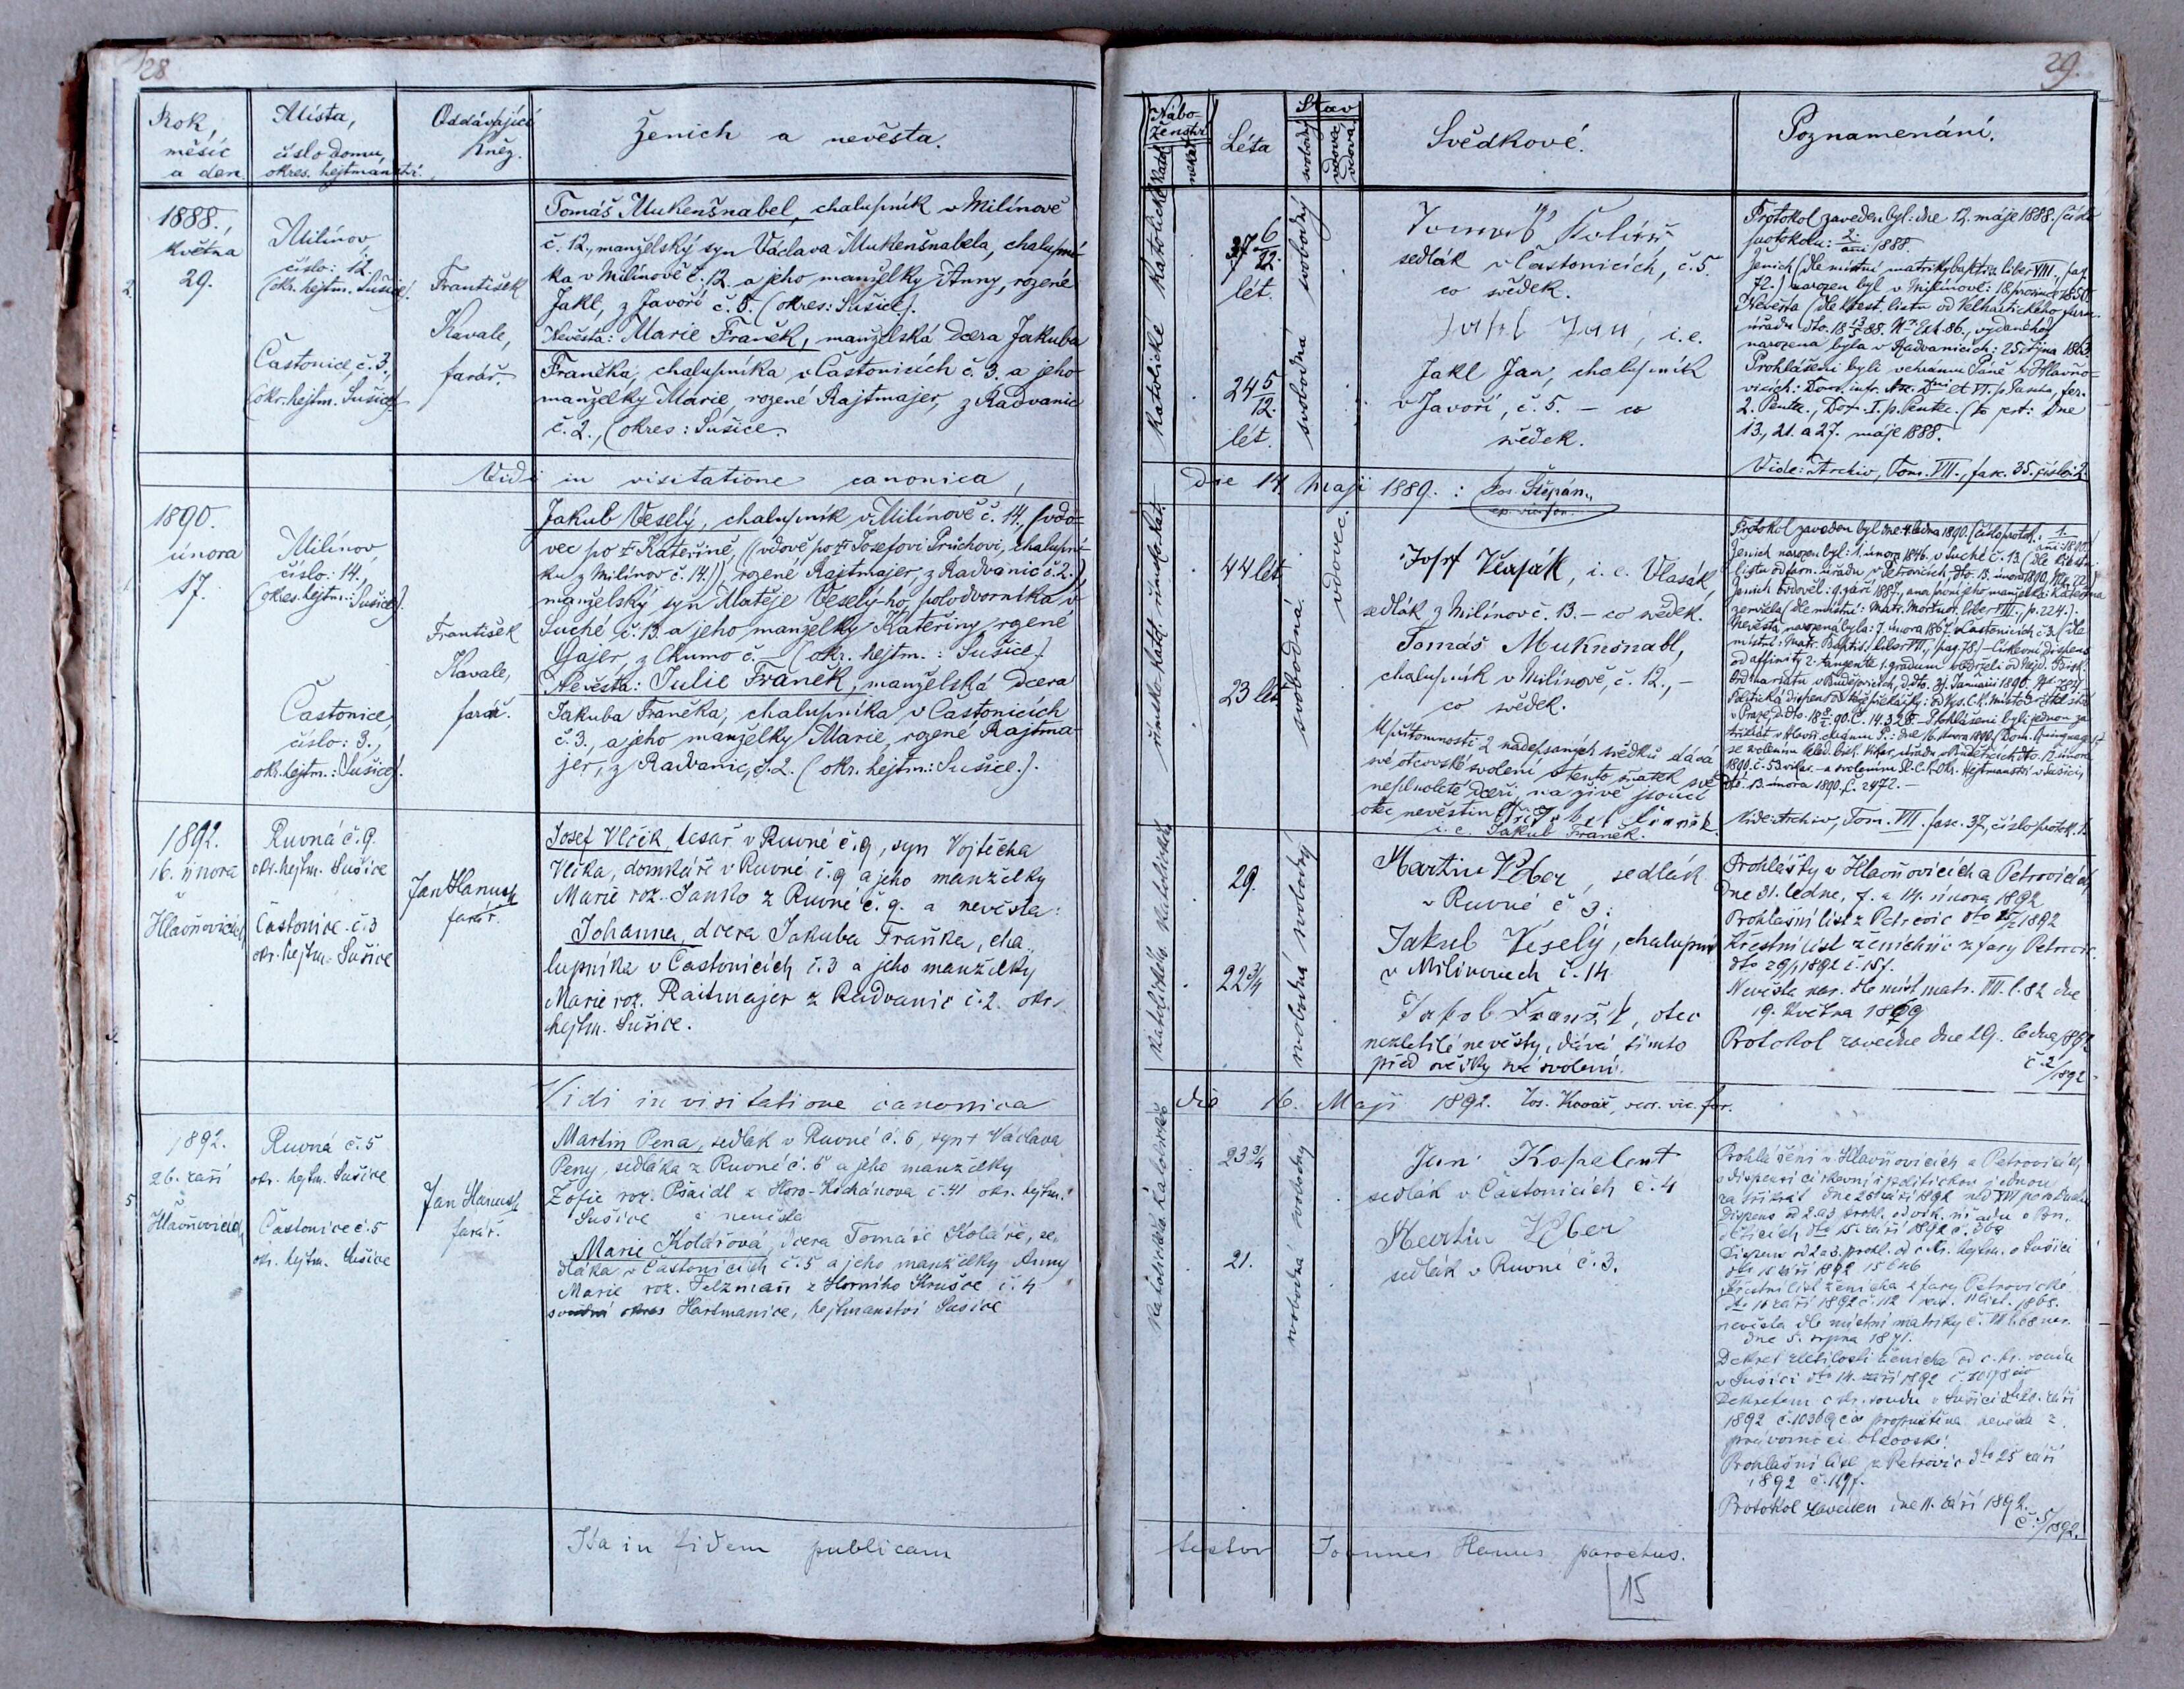 28
Rok,
měsíc
a den.
Místa,
číslo domu,
okres. hejtmanství.
Oddávající
kněz.
Ženich a nevěsta.
1888.,
května
29.
2
Milínov,
číslo: 12.
(okr. hejtm. Sušice).
Častonice, č. 3.,
(okr. hejtm. Sušice)
František
Kavale,
farář.
Tomáš Mukenšnabel, chalupník v Milínově
č. 12., manželský syn Václava Mukenšnabela, chalupní-
ka v Milínově č. 12. a jeho manželky Anny, rozené
Jakl, z Javoří č. 5. (okres: Sušice).
Nevěsta: Marie Franěk, manželská dcera Jakuba
Franěka, chalupníka v Častonicích č. 3. a jeho
manželky Marie, rozené Rajtmajer, z Radvanic
č. 2., (okres: Sušice.
Vidi in visitatione canonica,
1890.
února
17.
1
Milínov,
číslo: 14.,
(okres. hejtm.: Sušice).
Častonice,
číslo: 3.,
okr. hejtm.: Sušice).
František
Kavale,
farář.
Jakub Veselý, chalupník v Milínově č. 14., (vdo-
vec po † Kateřině, (vdově po † Josefovi Průchovi, chalupní-
ku z Milínov č. 14.)), rozené Rajtmajer, z Radvanic č. 2.)
manželský syn Matěje Veselý-ho, polodvorníka v
Suché č. 13. a jeho manželky Kateřiny rozené
Gajer, z Chumo č. (okr. hejtm.: Sušice)
Nevěsta: Julie Franěk, manželská dcera
Jakuba Franěka, chalupníka v Častonicích
č. 3., a jeho manželky Marie, rozené Rajtma-
jer, z Radvanic, č. 2. (okr. hejtm.: Sušice.).
1892.
16. února
v
Hlavňovicích
Ruvná č. 9.
okr. hejtm. Sušice
Častonice č. 3
okr. hejtm. Sušice
Jan Hanusch
farář.
Josef Vlček tesař v Ruvné č. 9, syn Vojtěcha
Vlčka, domkáře v Ruvné č. 9 a jeho manželky
Marie roz. Janko z Ruvné č. 9. a nevěsta:
Johanna, dcera Jakuba Franka, cha-
lupníka v Častonicích č. 3 a jeho manželky
Marie roz. Raitmajer z Radvanic č. 2. okr.
hejtm. Sušice.
Vidi in visitatione canonica
1892.
26. září
v
Hlavňovicích
5
Ruvná č. 5
okr. hejtm. Sušice
Častonice č. 5
okr. hejtm. Sušice
Jan Hanusch
farář.
Martin Pena, sedlák v Ruvné č. 6, syn † Václava
Peny, sedláka z Ruvné č. 6 a jeho manželky
Žofie roz. Pšaidl z Horo-Kochánova č. 41 okr. hejtm.
Sušice a nevěsta
Marie Kolářová, dcera Tomáše Koláře, se-
dláka v Častonicích č. 5 a jeho manželky Anny
Marie roz. Felzmann z Horního Krušce č. 4
soudní okres Hartmanice, hejtmanství Sušice
Ita in fidem publicam
29.
Nábo-
ženství
katol.
nekat.
Léta
Stav
svobodný
vdovec,
vdova.
Svědkové.
Poznamenání.
katolické katolické
37 6/12.
lét.
24 5/12.
lét.
svobodná svobodný
Tomáš Kolář
sedlák v Častonicích, č. 5.
co svědek.
Jakl Jan, i. e.
Jakl Jan, chalupník
v Javoří, č. 5. – co
svědek.
Protokol zaveden byl: dne 12. máje 1888. (číslo
protokolu: 2./anni 1888.
Ženich (dle místní matriky baptis. liber VIII., pag.
72.) narozen byl v Milínově: 18. prosince 1850.
narozena byla v Radvanicích: 25. října 1863.
Prohlášeni byli v chrámu Páně v Hlavňo-
vicích:
2. Pentec., Dom. I. p. Pentec. (to jest: dne
13., 21. a 27. máje 1888.
Vide: Archiv, Tom. VII., fasc. 35. číslo: 2.
die 14 Maji 1889.: Jos. Štěpán,
římsko-katol. římsko-kat.
44 lét
23 lét
svobodná.
vdovec.
Josef Vlasák, i. e. Vlasák,
sedlák z Milínov č. 13. – co svědek.
Tomáš Muknšnabl,
chalupník v Milínově, č. 12., –
co svědek.
U přítomnosti 2 nadepsaných svědků dává
své otcovské svolení v tento sňatek své
neplnoleté dceři, na živě jsoucí
otec nevěstin
i. e. Jakub Franěk.
Protokol zaveden byl dne 4. ledna 1890. (číslo protok.: 1./anni 1890.)
Ženich narozen byl: 1. února 1846. v Suché č. 13. (dle křest.
listu od farn. úřadu v Petrovicích, dto. 13. února 1890,
Ženich vdověl: 9. září 1887., ana první jeho manželka: Kateřina
zemřela (dle místní: Matr. Mortuor. liber VIII., p. 224.).
Nevěsta narozena byla: 7. února 1867. v Častonicích č. 3. (dle
místní: Matr. Baptis. liber VIII., pag. 78.) – Církevní dispens
1890. č. 53. – a svolením Sl. C. k. Okr. Hejtmanství v Sušici,
dto. 13. února 1890, č. 2472. –
Vide: Archiv, Tom. VII. fasc. 37, číslo protok. 1.
katolická katolické
29.
22 3/4
svobodná svobodný
Martin Weber, sedlák
v Ruvné č 3.
Jakub Veselý, chalupní
v Milinovech č. 14
Jakob Franěk, otec
nezletilé nevěsty, dává tímto
před svědky své svolení.
Prohlášky v Hlavňovicích a Petrovicích
dne 31. ledna, 7. a 14. února 1892
Prohlašní list z Petrovic dto 15/2 1892
Křestní list ženichův z fary Petrovic.
dto 29/1 1892 č. 157.
Nevěsta nar. dle míst matr. VIII. l. 82 dne
19. května 1869
Protokol zaveden dne 29. ledna 1892
č. 2/1892
die 16. Maji 1892. Jos. Kovář, vic. for.
katolická katolické
23 3/4
21.
svobodná svobodný
Jan Kopelent
sedlák v Častonicích č. 4
Martin Weber
sedlák v Ruvné č. 3.
Prohlášeni v Hlavňovicích a Petrovicích
s dispensí církevní i politickou jednou
za třikrát dne 25. září 1892 ned XVI po sv. Duchu
dto 10 září 1892 15646
Křestní list ženicha z fary Petrovické
dto 10 září 1892 č. 112 nar. 11 list. 1868.
nevěsta dle místní matriky č. VIII l. 68 nar.
dne 5. srpna 1871.
Dekret zletilosti ženicha od c. kr. soudu
v Sušici dto 14. září 1892
Dekretem c. kr. soudu v Sušici
1892 č. 10369 civ propuštěna nevěsta z
otcovské.
Prohlašní list z Petrovic dto 25 září
1892 č. 1197.
Protokol zaveden dne 11. září 1892.
č. 5/1892.
testor Joannes Hanus parochus.
15